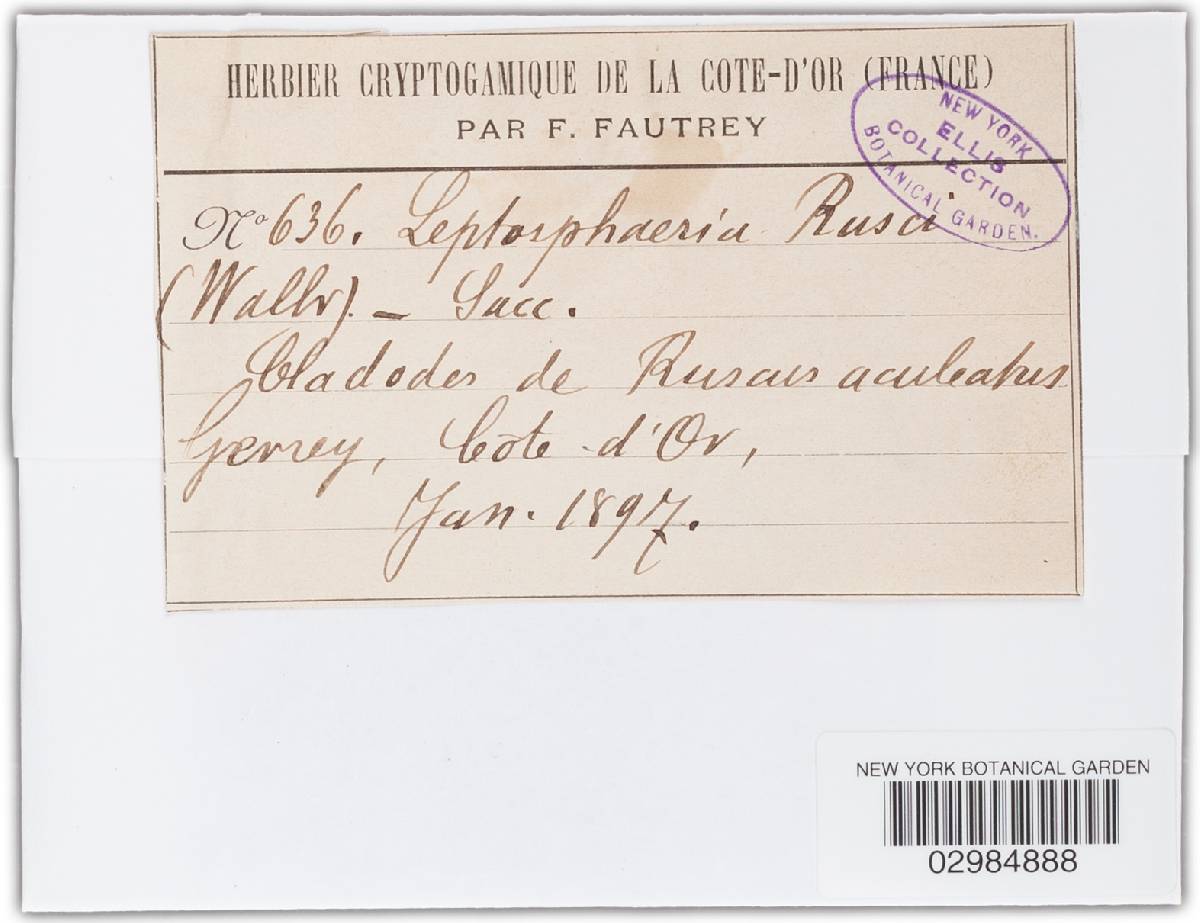 HERBIER CRYPTOGAMIQUE DE LA COTE-D'OR (FRANCE)
PAR F. FAUTREY
NEW YORK
ELLIS
COLLECTION
BOTANICAL GARDEN.
No 636. Leptosphaeria Rusci
(Wallr). – Sacc.
Cladodes de Ruscus aculeatus
Gevrey, Côte-d'Or,
Jan. 1897.
NEW YORK BOTANICAL GARDEN
02984888